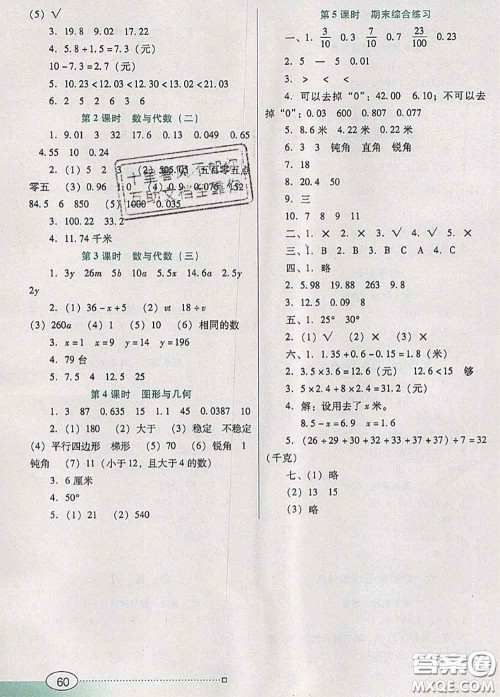 (5) √
3. 19.8 9.02 11 10.8
4. 5.8+1.5=7.3(元)
10-7.3=2.7(元)
5. 10.23<12.03<12.30<12.32
6. 2 5 2 3 6
第2课时 数与代数(二)
1. 9.01 3 32 17.6 0.13 0.049 0.65
4.55 10 0.24
2. (1) 5 2 3 (2) 505.05 五百零五点
零五 (3) 0.96 (4) 0.9
84.5 850 (5) 1000 0.035
3. 100.22
4. 11.74千米
第3课时 数与代数(三)
1. 3y 26m 5b 10a 5.5x 14.6a 2.5y
2y
2. (1) 36-x+5 (2) vt 18÷v
(3) 260a (4) 1 (5) 10 (6) 相同的数
3. x=1 x=9 y=14 y=196
4. 79台
5. 7.5 4 12.5 25
第4课时 图形与几何
1. 3 87 0.635 15 1.1 45 0.0387 10
2. (1) 180 (2) 大于 (3) 稳定 不稳定
(4) 平行四边形 梯形 (5) 70 (6) 锐角 1
钝角 (7) 11(小于12,且大于4的数)
3. 6厘米
4. (1) 略
5. (1) 21 (2) 540
60
第5课时 期末综合练习
一、1. 3/10 0.3 7/10 0.7 23/100 0.23
2. 5 — 5 0.05
3. > < < <
4. 可以去掉“0”:42.00 6.10;不可以去
掉“0”:0.03 600 0.078
5. 8.4米 0.22米 0.24米
6. 3 3 钝角 直角 锐角
7. 0.02
8. 20.15
9. 三
10. 7 8 15
二、1. × 2. √ 3. √ 4. ×
三、1. B 2. A 3. B C A 4. C
四、1. 略
2. 5.98 19.88 263 9
3. 12 0.09 8
五、1. 25° 30°
2. (1) √ (2) × (3) ×
六、1. 1.35+0.6-1.8=0.15(米)
2. 3.5×2.4+3.2=11.6(元) 11.6<12 够
3. 5×2.4÷8=1.5(元)
4. 解:设用去了x米。
8.5-x=6.9 x=1.6
5. (26+29+32+30+33+37+37)÷7=32
(千克)
七、(1) 略
(2) 13 15
(3) 略
答案圈
MXQE.COM